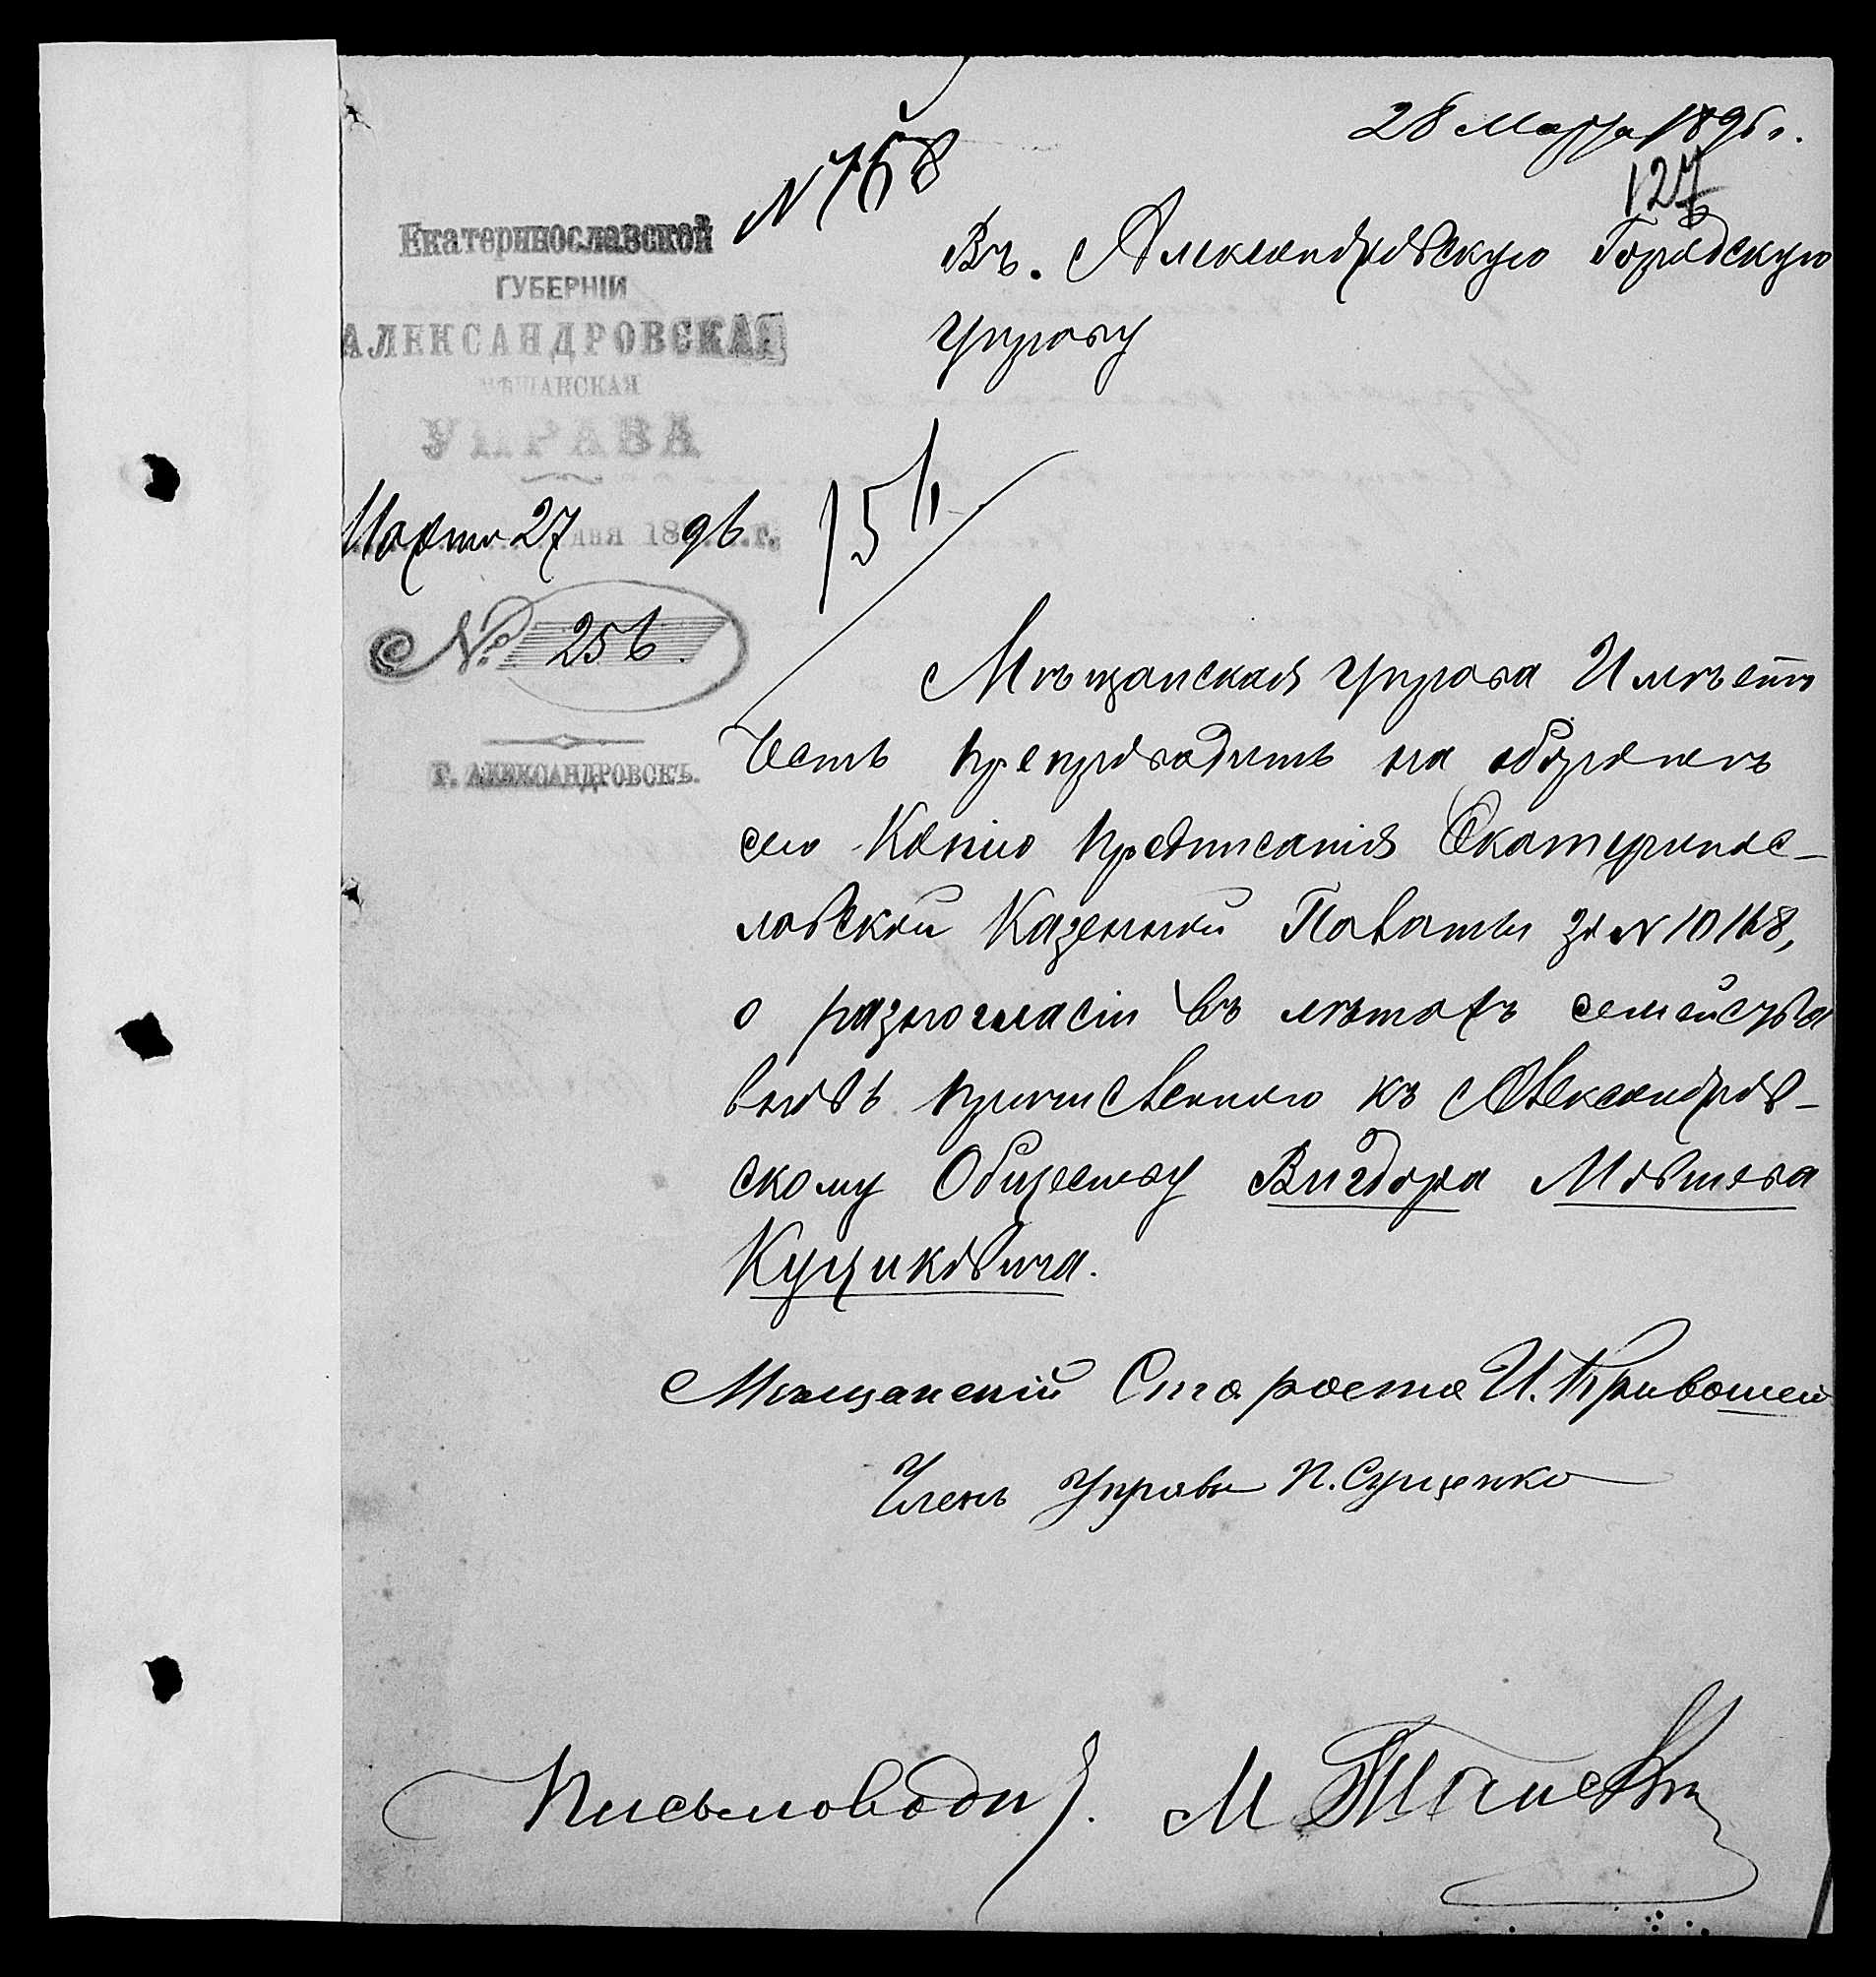 28 Марта 1896 г.
127
№ 768
Екатеринославской
ГУБЕРНІИ
АЛЕКСАНДРОВСКАЯ
МѢЩАНСКАЯ
УПРАВА
Марта 27 дня 1896 г.
№ 256.
Г. АЛЕКСАНДРОВСКЪ.
Въ Александровскую Городскую
Управу
Мѣщанская Управа Имѣетъ
Честь препроводить на обороте
сего Копію Предписанія Екатеринос-
лавской Казенной Палаты за № 10168,
о разногласіи въ лѣтахъ семейства
вновь причисленного къ Александров-
скому Обществу Вигдора Мовшева
Куциковича.
Мѣщанскій Староста И. Кривошей
Членъ Управы П. Сущенко
Письмоводи
М.